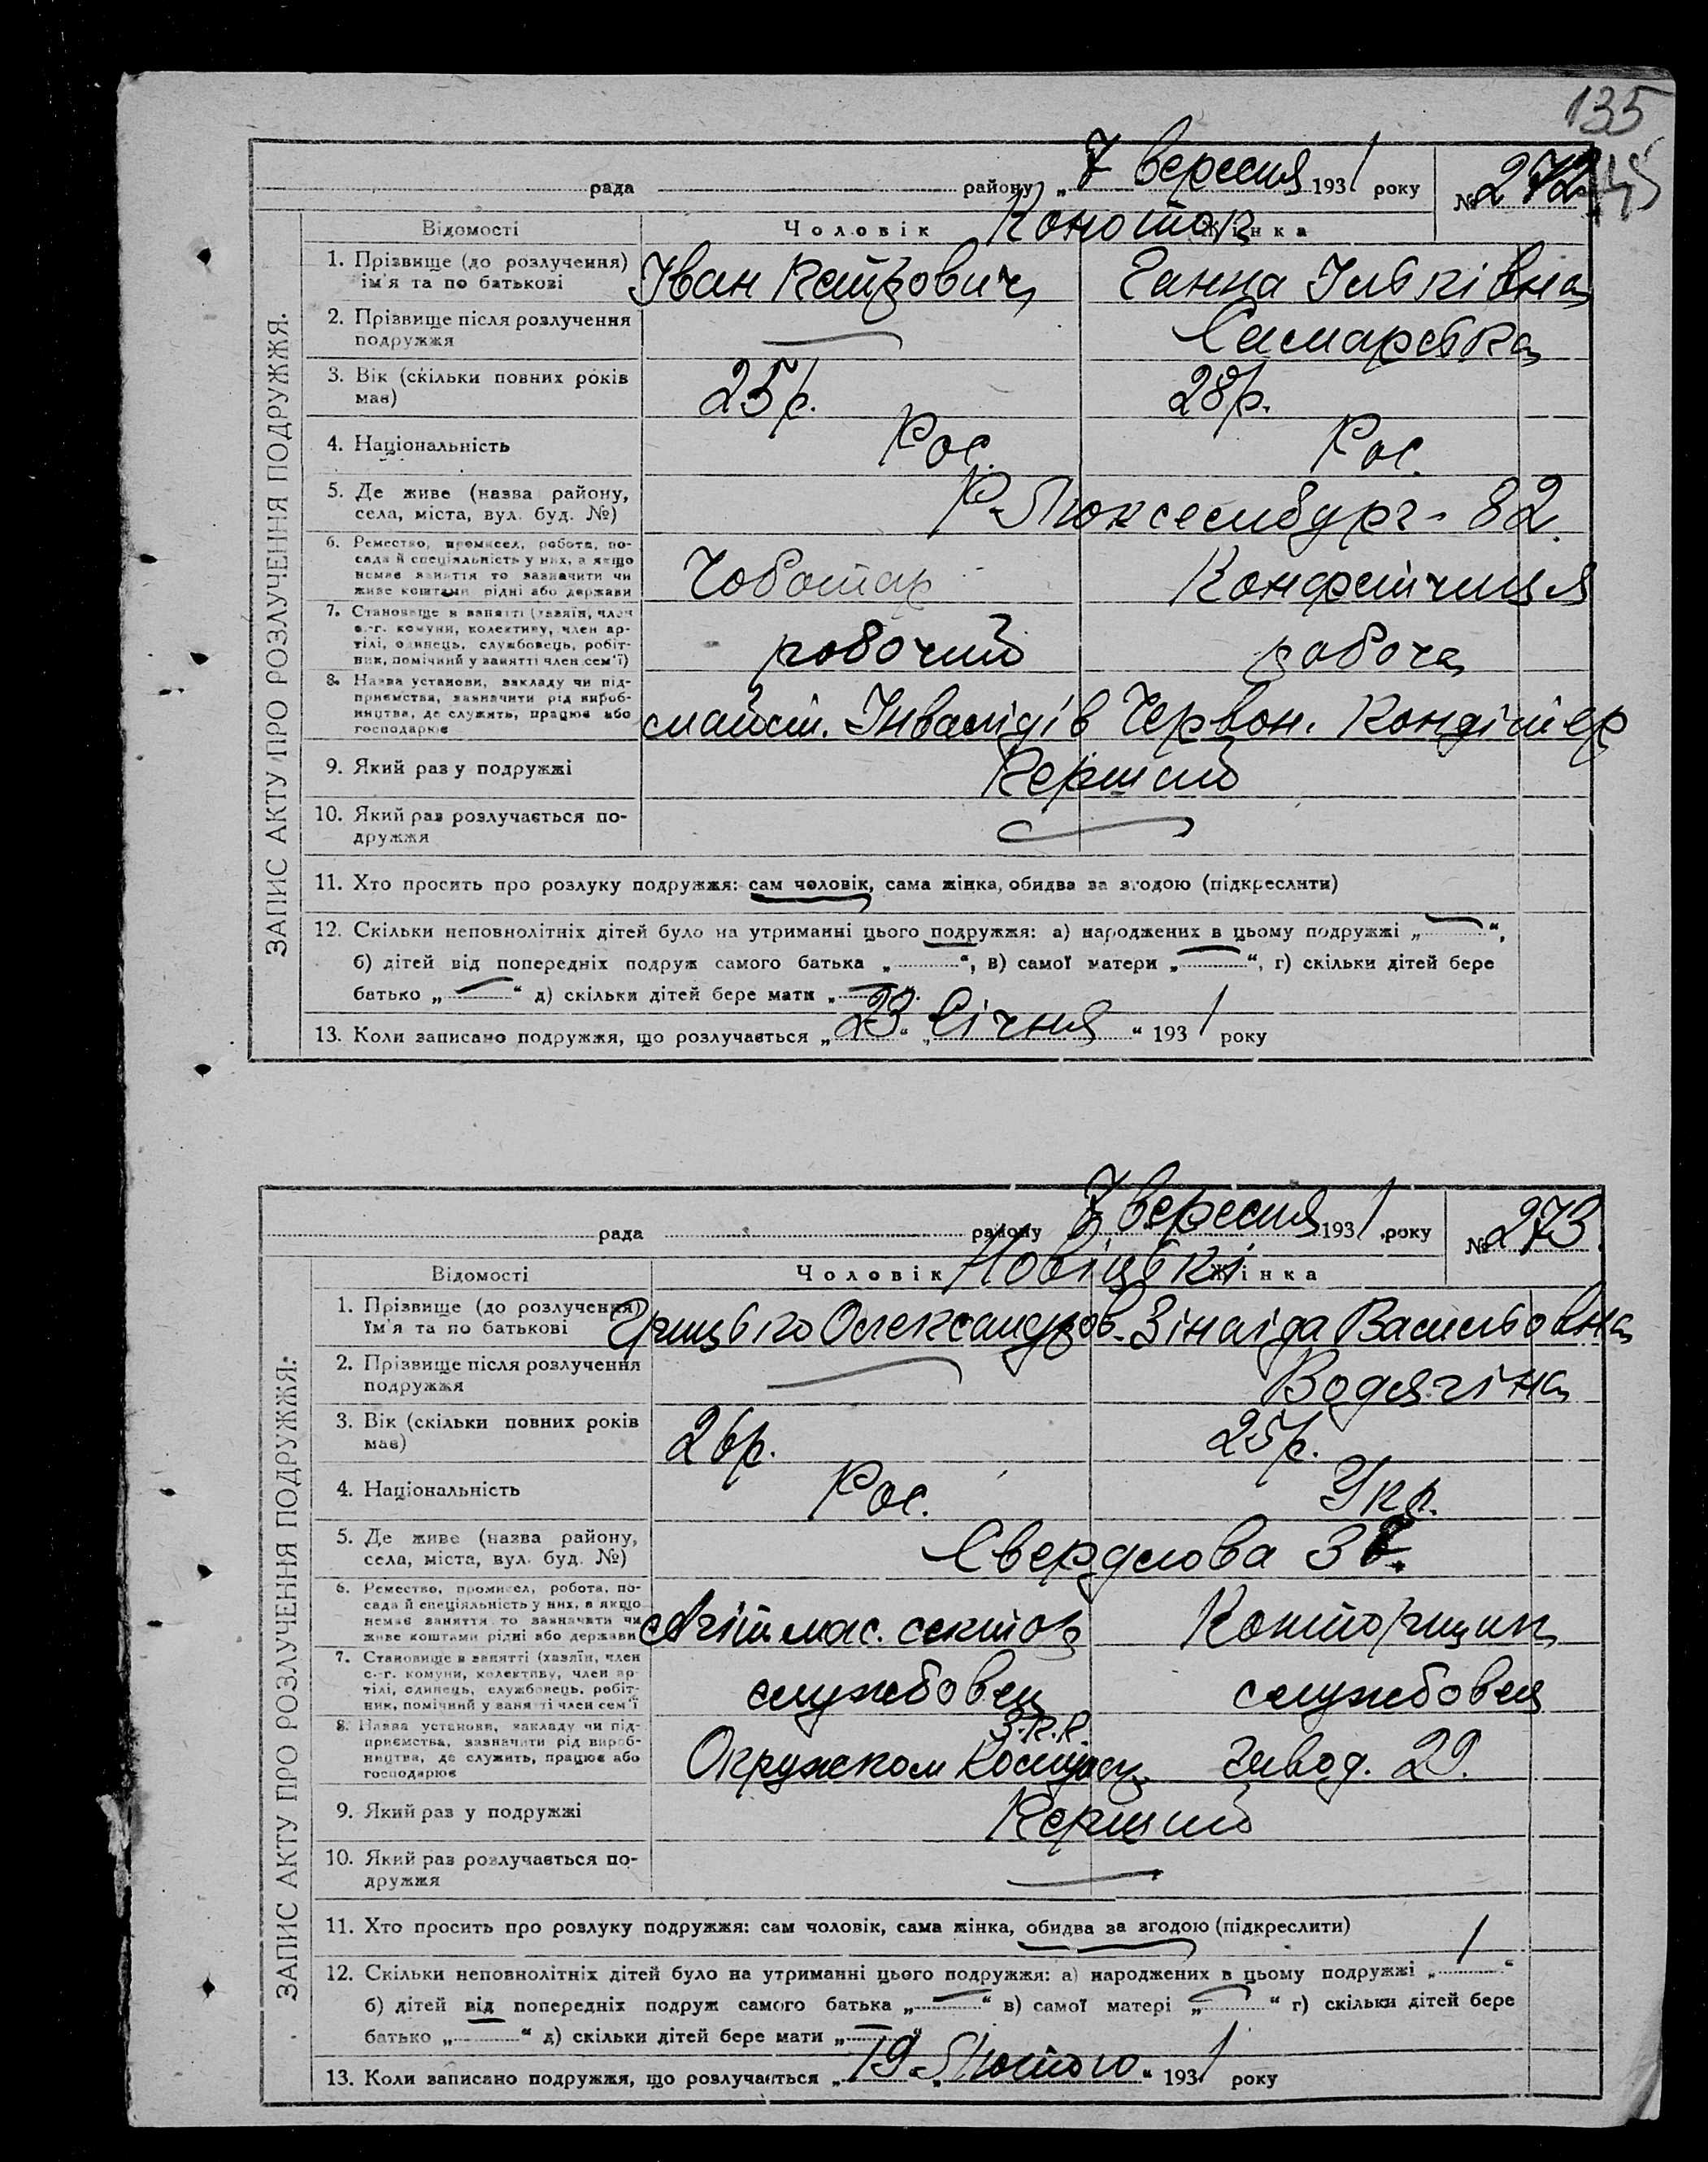 135
145
рада района „7 вересня 1931 року № 272
Конотоп
Відомості Чоловік Жінка
ЗАПИС АКТУ ПРО РОЗЛУЧЕННЯ ПОДРУЖЖЯ.
1. Прізвище (до розлучення) Іван Петрович Ганна Ільківна
ім'я та по батькові
2. Прізвище після розлучення Самарська
подружжя
3. Вік (скільки повних років 25 р. 28 р.
має)
4. Національність Рос. Рос.
5. Де живе (назва району, Р. Люксембург - 82.
села, міста, вул. буд. №)
6. Ремество, промисел, робота, по-
сада й спеціяльність у них, а якщо Чоботар Конфетчиця
немає заняття то зазначити чи
живе коштами рідні або держави
7. Становище в занятті (хазяїн, член
с.-г. комуни, колективу, член ар-
тілі, одинець, службовець, робіт- робочий робоча
ник, помічний у занятті член сем'ї)
8. Назва установи, закладу чи під-
приємства, зазначити рід вироб-
ництва, де служить, працює або майст. Інвалідів Червон. Кондітер
господарює
9. Який раз у подружжі Перший
10. Який раз розлучається по-
дружжя
11. Хто просить про розлуку подружжя: сам чоловік, сама жінка, обидва за згодою (підкреслити)
12. Скільки неповнолітніх дітей було на утриманні цього подружжя: а) народжених в цьому подружжі „ “,
б) дітей від попередніх подруж самого батька „ “, в) самої матери „ “, г) скільки дітей бере
батько „ “ д) скільки дітей бере мати „ “.
13. Коли записано подружжя, що розлучається „23“ „Січня“ 1931 року
рада району 7 вересня 1931 року № 273.
Новіцькі
Відомості Чоловік Жінка
ЗАПИС АКТУ ПРО РОЗЛУЧЕННЯ ПОДРУЖЖЯ.
1. Прізвище (до розлучення) Грицько Олександров. Зінаїда Васильовна
ім'я та по батькові
2. Прізвище після розлучення Водягіна
подружжя
3. Вік (скільки повних років 26 р. 25 р.
має)
4. Національність Рос. Укр.
5. Де живе (назва району, Свердлова
села, міста, вул. буд. №)
6. Ремество, промисел, робота, по-
сада й спеціяльність у них, а якщо
немає заняття то зазначити чи Агіт. мас. сектор Конторщик
живе коштами рідні або держави
7. Становище в занятті (хазяїн, член
с.-г. комуни, колективу, член ар-
тілі, одинець, службовець, робіт- службовец службовец
ник, помічний у занятті член сем'ї
8. Назва установи, закладу чи під-
приємства, зазначити рід вироб-
ництва, де служить, працює або Окружком завод. 29.
господарює
9. Який раз у подружжі Перший
10. Який раз розлучається по-
дружжя
11. Хто просить про розлуку подружжя: сам чоловік, сама жінка, обидва за згодою (підкреслити)
12. Скільки неповнолітніх дітей було на утриманні цього подружжя: а) народжених в цьому подружжі „1“
б) дітей від попередніх подруж самого батька „ “ в) самої матері „ “ г) скільки дітей бере
батько „ “ д) скільки дітей бере мати „ “
13. Коли записано подружжя, що розлучається „19“ „Лютого“ 1931 року